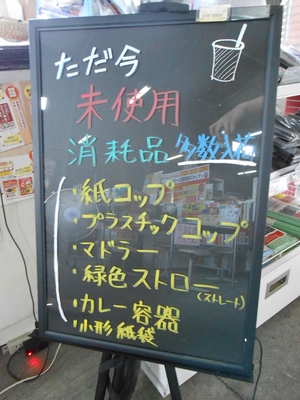 ただ今
未使用
消耗品 多数入荷
・紙コップ
・プラスチックコップ
・マドラー
・緑色ストロー
(ストレート)
・カレー容器
・小形紙袋